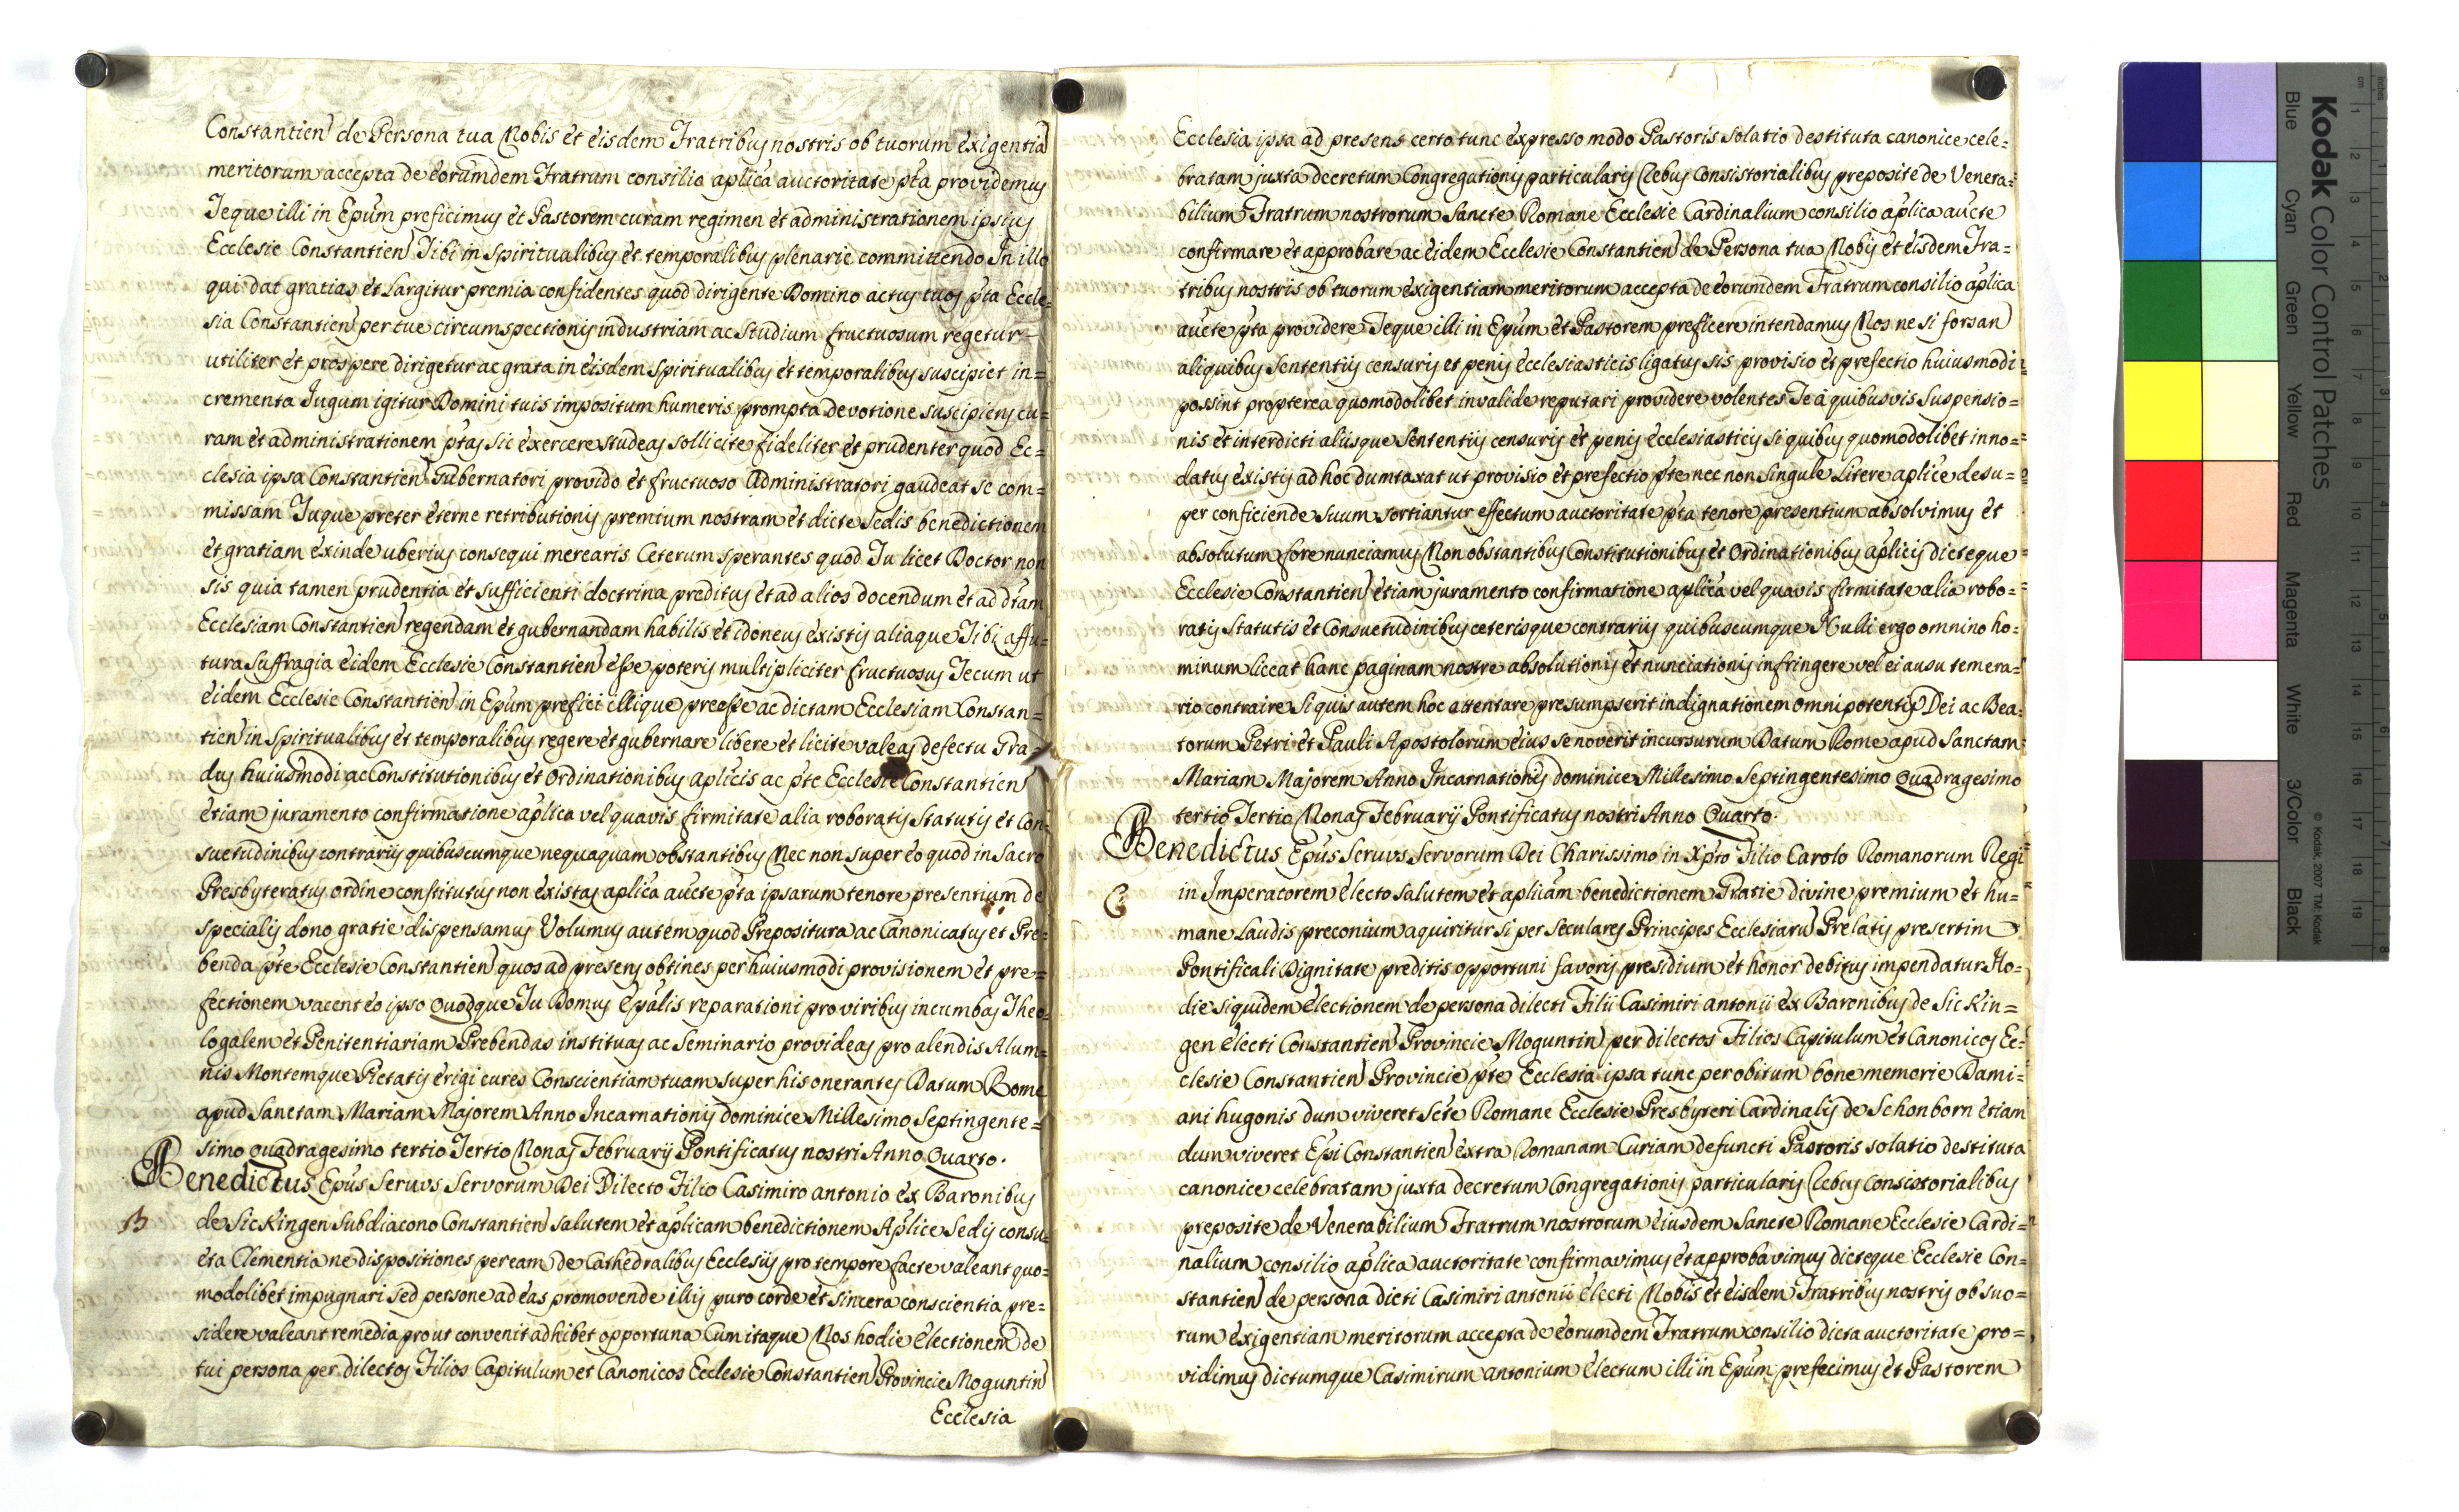 Constantien de Persona tua Nobis et eisdem Fratribus nostris ob tuorum exigentia
meritorum accepta de eorumdem Fratrum consilio aplica auctoritate pta providemus
Teque illi in Epum preficimus et Pastorem curam regimen et administrationem ipsius
Ecclesie Constantien Tibi in Spiritualibus et temporalibus plenarie committendo In illo
qui dat gratias et Largitur premia confidentes quod dirigente Domino actus tuos pta Eccle=
sia Constantien per tue circumspectionis industriam ac Studium fructuosum regetur
utiliter et prospere dirigetur ac grata in eisdem Spiritualibus et temporalibus suscipiet in=
crementa Jugum igitur Domini tuis impositum humeris prompta devotione suscipiens cu=
ram et administrationem ptas sic exercere studeas sollicite fideliter et prudenter quod Ec=
clesia ipsa Constantien Gubernatori provido et fructuoso Administratori gaudeat se com=
missam Tuque preter eterne retributionis premium nostram et dicte Sedis benedictionem
et gratiam exinde uberius consequi merearis Ceterum sperantes quod Tu licet Doctor non
sis quia tamen prudentia et sufficienti doctrina preditus et ad alios docendum et ad dtam
Ecclesiam Constantien regendam et gubernandam habilis et idoneus existis aliaque Tibi affu=
tura Suffragia eidem Ecclesie Constantien esse poteris multipliciter fructuosus Tecum ut
eidem Ecclesie Constantien in Epum prefici illique preesse ac dictam Ecclesiam Constan=
tien in Spiritualibus et temporalibus regere et gubernare libere et licite valeas defectu Gra=
dus huiusmodi ac Constitutionibus et Ordinationibus aplicis ac pte Ecclesie Constantien
etiam juramento confirmatione aplica vel quavis firmitate alia roboratis Statutis et Con=
suetudinibus contrariis quibuscumque nequaquam obstantibus Nec non super eo quod in Sacro
Presbyteratus ordine constitutus non existas aplica aucte pta ipsarum tenore presentium de
specialis dono gratie dispensamus Volumus autem quod Prepositura ac Canonicatus et Pre=
benda pte Ecclesie Constantien quos ad presens obtines per huiusmodi provisionem et pre=
fectionem vacent eo ipso Quodque Tu Domus Epalis reparationi pro viribus incumbas Theo=
logalem et Penitentiariam Prebendas instituas ac Seminario provideas pro alendis Alum=
nis Montemque Pietatis erigi cures Conscientiam tuam super his onerantes Datum Rome
apud Sanctam Mariam Majorem Anno Incarnationis dominice Millesimo Septingente=
simo quadragesimo tertio Tertio Nonas Februarij Pontificatus nostri Anno Quarto.
Benedictus Epus Servus Servorum Dei Dilecto Filio Casimiro antonio ex Baronibus
B
de Sickingen Subdiacono Constantien salutem et aplicam benedictionem Aplice Sedis consu=
eta Clementia ne dispositiones per eam de Cathedralibus Ecclesiis pro tempore facte valeant quo=
modolibet impugnari Sed persone ad eas promovende illis puro corde et sincera conscientia pre=
sidere valeant remedia prout convenit adhibet opportuna Cum itaque Nos hodie Electionem de
tui persona per dilectos Filios Capitulum et Canonicos Ecclesie Constantien Provincie Moguntin
Ecclesia
Ecclesia ipsa ad presens certo tunc expresso modo Pastoris solatio destituta canonice cele=
bratam juxta decretum Congregationis particularis Rebus Consistorialibus preposite de Venera=
bilium Fratrum nostrorum Sancte Romane Ecclesie Cardinalium consilio aplica aucte
confirmare et approbare ac eidem Ecclesie Constantien de Persona tua Nobis et eisdem Fra=
tribus nostris ob tuorum exigentiam meritorum accepta de eorumdem Fratrum consilio aplica
aucte pta providere Teque illi in Epum et Pastorem preficere intendamus Nos ne si forsan
aliquibus Sententiis censuris et penis ecclesiasticis ligatus sis provisio et prefectio huiusmodi
possint propterea quomodolibet invalide reputari providere volentes Te a quibusvis Suspensio=
nis et interdicti aliisque Sententiis censuris et penis ecclesiasticis si quibus quomodolibet inno=
datus existis ad hoc dumtaxat ut provisio et prefectio pte nec non Singule Litere aplice desu=
per conficiende Suum sortiantur effectum auctoritate pta tenore presentium absolvimus et
absolutum fore nunciamus Non obstantibus Constitutionibus et Ordinationibus aplicis dicteque
Ecclesie Constantien etiam juramento confirmatione aplica vel quavis firmitate alia robo=
ratis Statutis et Consuetudinibus ceterisque contrariis quibuscumque Nulli ergo omnino ho=
minum liceat hanc paginam nostre absolutionis et nunciationis infringere vel ei ausu temera=
rio contraire Si quis autem hoc attentare presumpserit indignationem omnipotentis Dei ac Bea=
torum Petri et Pauli Apostolorum eius se noverit incursurum Datum Rome apud Sanctam
Mariam Majorem Anno Incarnationis dominice Millesimo Septingentesimo Quadragesimo
tertio Tertio Nonas Februarij Pontificatus nostri Anno Quarto.
Benedictus Epus Servus Servorum Dei Charissimo in Xpto Filio Carolo Romanorum Regi
C
in Imperatorem electo salutem et aplicam benedictionem Gratie divine premium et hu=
mane Laudis preconium aquiritur si per Seculares Principes Ecclesiaru Prelatis presertim
Pontificali Dignitate preditis opportuni favoris presidium et honor debitus impendatur Ho=
die siquidem electionem de persona dilecti Filii Casimiri antonii ex Baronibus de Sickin=
gen electi Constantien Provincie Moguntin per dilectos Filios Capitulum et Canonicos Ec=
clesie Constantien Provincie pte Ecclesia ipsa tunc per obitum bone memorie Dami=
ani hugonis dum viveret Scte Romane Ecclesie Presbyteri Cardinalis de Schonborn etiam
dum viveret Epi Constantien extra Romanam Curiam defuncti Pastoris solatio destituta
canonice celebratam juxta decretum Congregationis particularis Rebus Consistorialibus
preposite de Venerabilium Fratrum nostrorum eiusdem Sancte Romane Ecclesie Cardi=
nalium consilio aplica auctoritate confirmavimus et approbavimus dicteque Ecclesie Con=
stantien de persona dicti Casimiri antonii electi Nobis et eisdem Fratribus nostris ob suo=
rum exigentiam meritorum accepta de eorumdem Fratrum consilio dicta auctoritate pro=
vidimus dictumque Casimirum antonium electum illi in Epum prefecimus et Pastorem
Kodak Color Control Patches
Blue Cyan Green Yellow Red Magenta White 3/Color Black
© Kodak, 2007 TM: Kodak
cm 1 2 3 4 5 6 7 8 9 10 11 12 13 14 15 16 17 18 19
inches 1 2 3 4 5 6 7 8